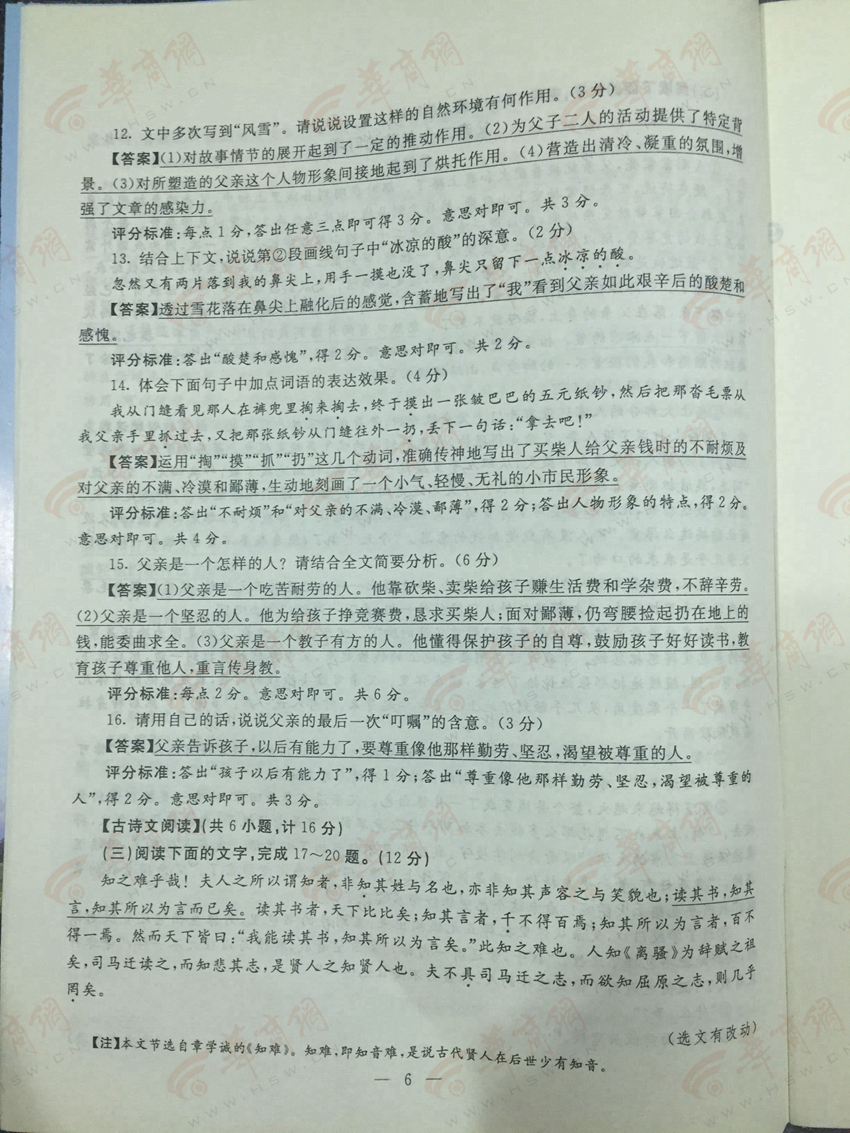 12. 文中多次写到“风雪”。请说说设置这样的自然环境有何作用。(3分)
【答案】(1)对故事情节的展开起到了一定的推动作用。(2)为父子二人的活动提供了特定背
景。(3)对所塑造的父亲这个人物形象间接地起到了烘托作用。(4)营造出清冷、凝重的氛围,增
强了文章的感染力。
评分标准:每点1分,答出任意三点即可得3分。意思对即可。共3分。
13. 结合上下文,说说第②段画线句子中“冰凉的酸”的深意。(2分)
忽然又有两片落到我的鼻尖上,用手一摸也没了,鼻尖只留下一点冰凉的酸。
【答案】透过雪花落在鼻尖上融化后的感觉,含蓄地写出了“我”看到父亲如此艰辛后的酸楚和
感愧。
评分标准:答出“酸楚和感愧”,得2分。意思对即可。共2分。
14. 体会下面句子中加点词语的表达效果。(4分)
我从门缝看见那人在裤兜里掏来掏去,终于摸出一张皱巴巴的五元纸钞,然后把那沓毛票从
我父亲手里抓过去,又把那张纸钞从门缝往外一扔,丢下一句话:“拿去吧!”
【答案】运用“掏”“摸”“抓”“扔”这几个动词,准确传神地写出了买柴人给父亲钱时的不耐烦及
对父亲的不满、冷漠和鄙薄,生动地刻画了一个小气、轻慢、无礼的小市民形象。
评分标准:答出“不耐烦”和“对父亲的不满、冷漠、鄙薄”,得2分;答出人物形象的特点,得2分。
意思对即可。共4分。
15. 父亲是一个怎样的人?请结合全文简要分析。(6分)
【答案】(1)父亲是一个吃苦耐劳的人。他靠砍柴、卖柴给孩子赚生活费和学杂费,不辞辛劳。
(2)父亲是一个坚忍的人。他为给孩子挣竞赛费,恳求买柴人;面对鄙薄,仍弯腰捡起扔在地上的
钱,能委曲求全。(3)父亲是一个教子有方的人。他懂得保护孩子的自尊,鼓励孩子好好读书,教
育孩子尊重他人,重言传身教。
评分标准:每点2分。意思对即可。共6分。
16. 请用自己的话,说说父亲的最后一次“叮嘱”的含意。(3分)
【答案】父亲告诉孩子,以后有能力了,要尊重像他那样勤劳、坚忍,渴望被尊重的人。
评分标准:答出“孩子以后有能力了”,得1分;答出“尊重像他那样勤劳、坚忍,渴望被尊重的
人”,得2分。意思对即可。共3分。
【古诗文阅读】(共6小题,计16分)
(三)阅读下面的文字,完成17～20题。(12分)
知之难乎哉!夫人之所以谓知者,非知其姓与名也,亦非知其声容之与笑貌也;读其书,知其
言,知其所以为言而已矣。读其书者,天下比比矣;知其言者,千不得百焉;知其所以为言者,百不
得一焉。然而天下皆曰:“我能读其书,知其所以为言矣。”此知之难也。人知《离骚》为辞赋之祖
矣,司马迁读之,而知悲其志,是贤人之知贤人也。夫不具司马迁之志,而欲知屈原之志,则几乎
罔矣。
(选文有改动)
【注】本文节选自章学诚的《知难》。知难,即知音难,是说古代贤人在后世少有知音。
— 6 —
華商網
WWW.HSW.CN